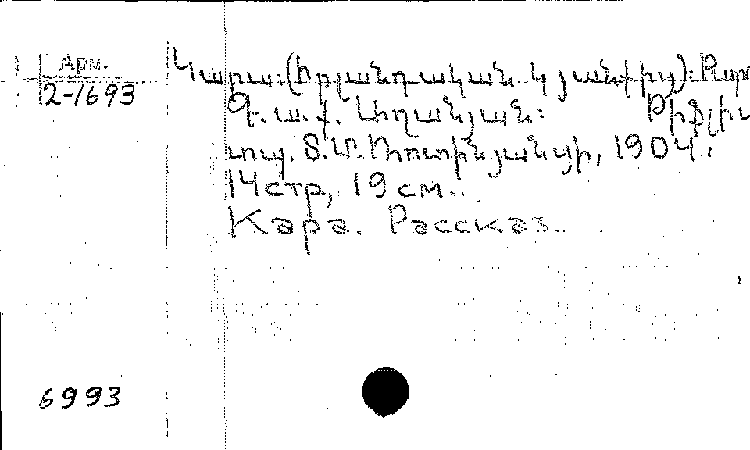 Арм.
2-1693
Կարա: (Իռլանդական կյանքից): Թարգ
Գ. ա. ք. Աղանյան: Թիֆլիս
տպ. Տ. Մ. Ռոտինյանցի, 1904.
14 стр, 19 см.
Кара. Рассказ.
6993